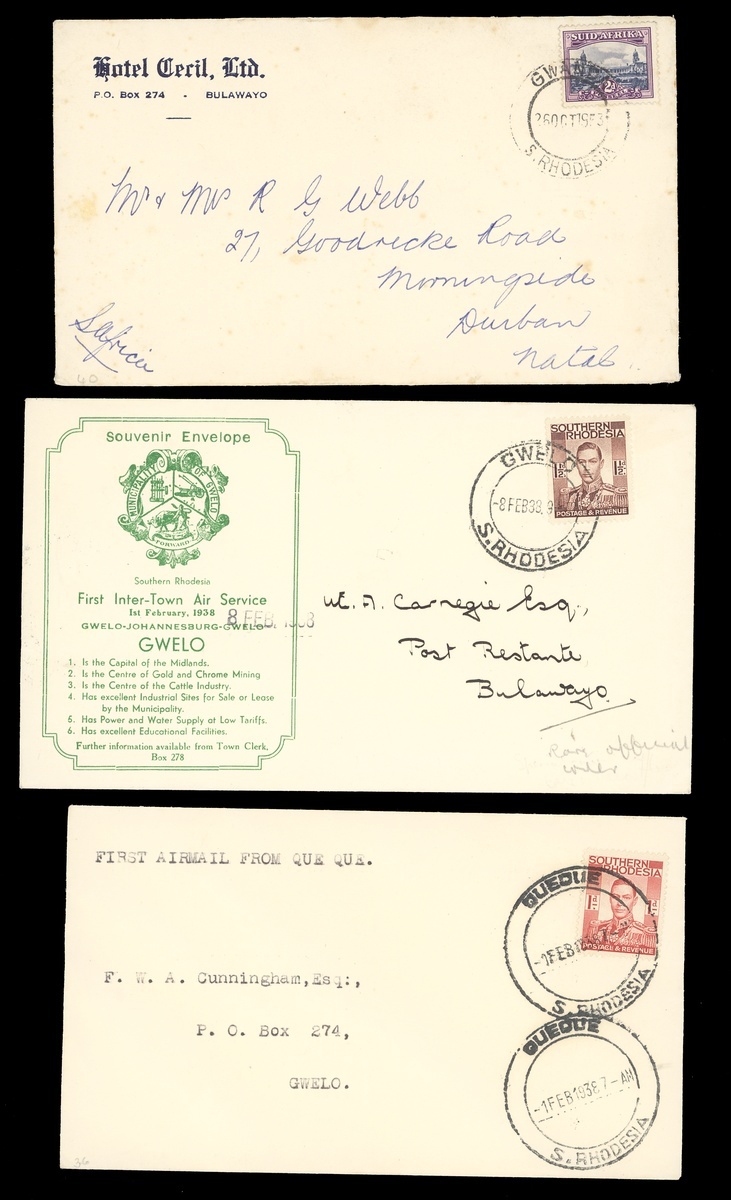 Hotel Cecil, Ltd.
P.O. Box 274 - BULAWAYO
SUID-AFRIKA
2d
GWAN
26 OCT 1953
S. RHODESIA
Mr & Mrs R G Webb
27, Goodricke Road
Morningside
Durban
Natal.
S Africa
40
Souvenir Envelope
MUNICIPALITY OF GWELO
FORWARD
Southern Rhodesia
First Inter-Town Air Service
1st February, 1938
8 FEB. 1938
GWELO-JOHANNESBURG-GWELO
GWELO
1. Is the Capital of the Midlands.
2. Is the Centre of Gold and Chrome Mining
3. Is the Centre of the Cattle Industry.
4. Has excellent Industrial Sites for Sale or Lease
by the Municipality.
5. Has Power and Water Supply at Low Tariffs.
6. Has excellent Educational Facilities.
Further information available from Town Clerk,
Box 278
SOUTHERN
RHODESIA
1½d 1½d
POSTAGE & REVENUE
GWELO
-8 FEB 38
S. RHODESIA
W. A. Carnegie Esq.,
Post Restante
Bulawayo
official
FIRST AIRMAIL FROM QUE QUE.
SOUTHERN
RHODESIA
1d 1d
POSTAGE & REVENUE
QUEQUE
-1 FEB 19
S. RHODESIA
F. W. A. Cunningham,Esq:,
P. O. Box 274,
GWELO.
QUEQUE
-1 FEB 1938 7-AM
S. RHODESIA
36